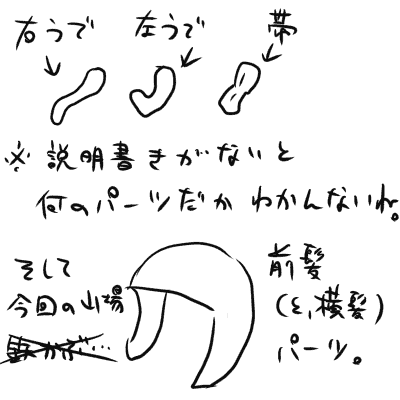 右うで
左うで
帯
※説明書きがないと
何のパーツだかわかんないね。
そして
今回の山場
前髪
(と、横髪)
パーツ。